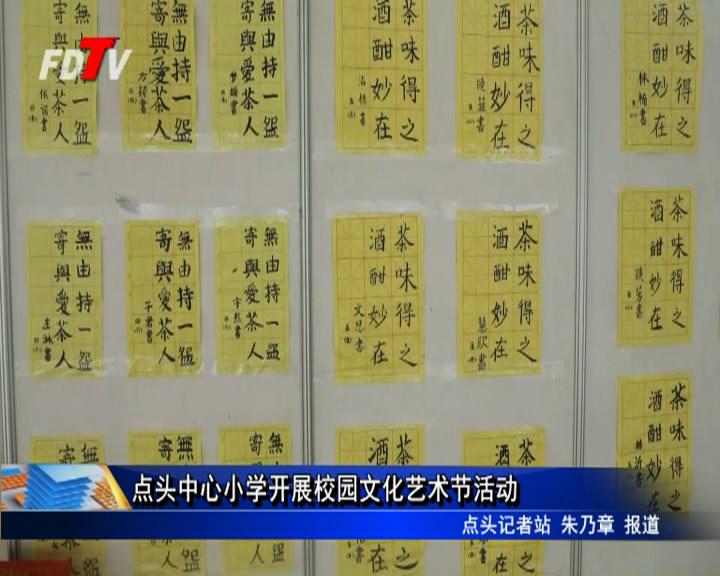 FDTV
無由持一盌
寄與愛茶人
無由持一盌
寄與愛茶人
無由持一盌
寄與愛茶人
茶味得之
酒酣妙在
茶味得之
酒酣妙在
茶味得之
酒酣妙在
林楠書
無由持一盌
寄與愛茶人
無由持一盌
寄與愛茶人
無由持一盌
寄與愛茶人
茶味得之
酒酣妙在
文思書
茶味得之
酒酣妙在
慧欣書
茶味得之
酒酣妙在
無
寄與
無
寄與
無
寄與
茶味得之
酒酣妙在
茶
酒
茶味得之
酒酣妙在
点头中心小学开展校园文化艺术节活动
点头记者站 朱乃章 报道